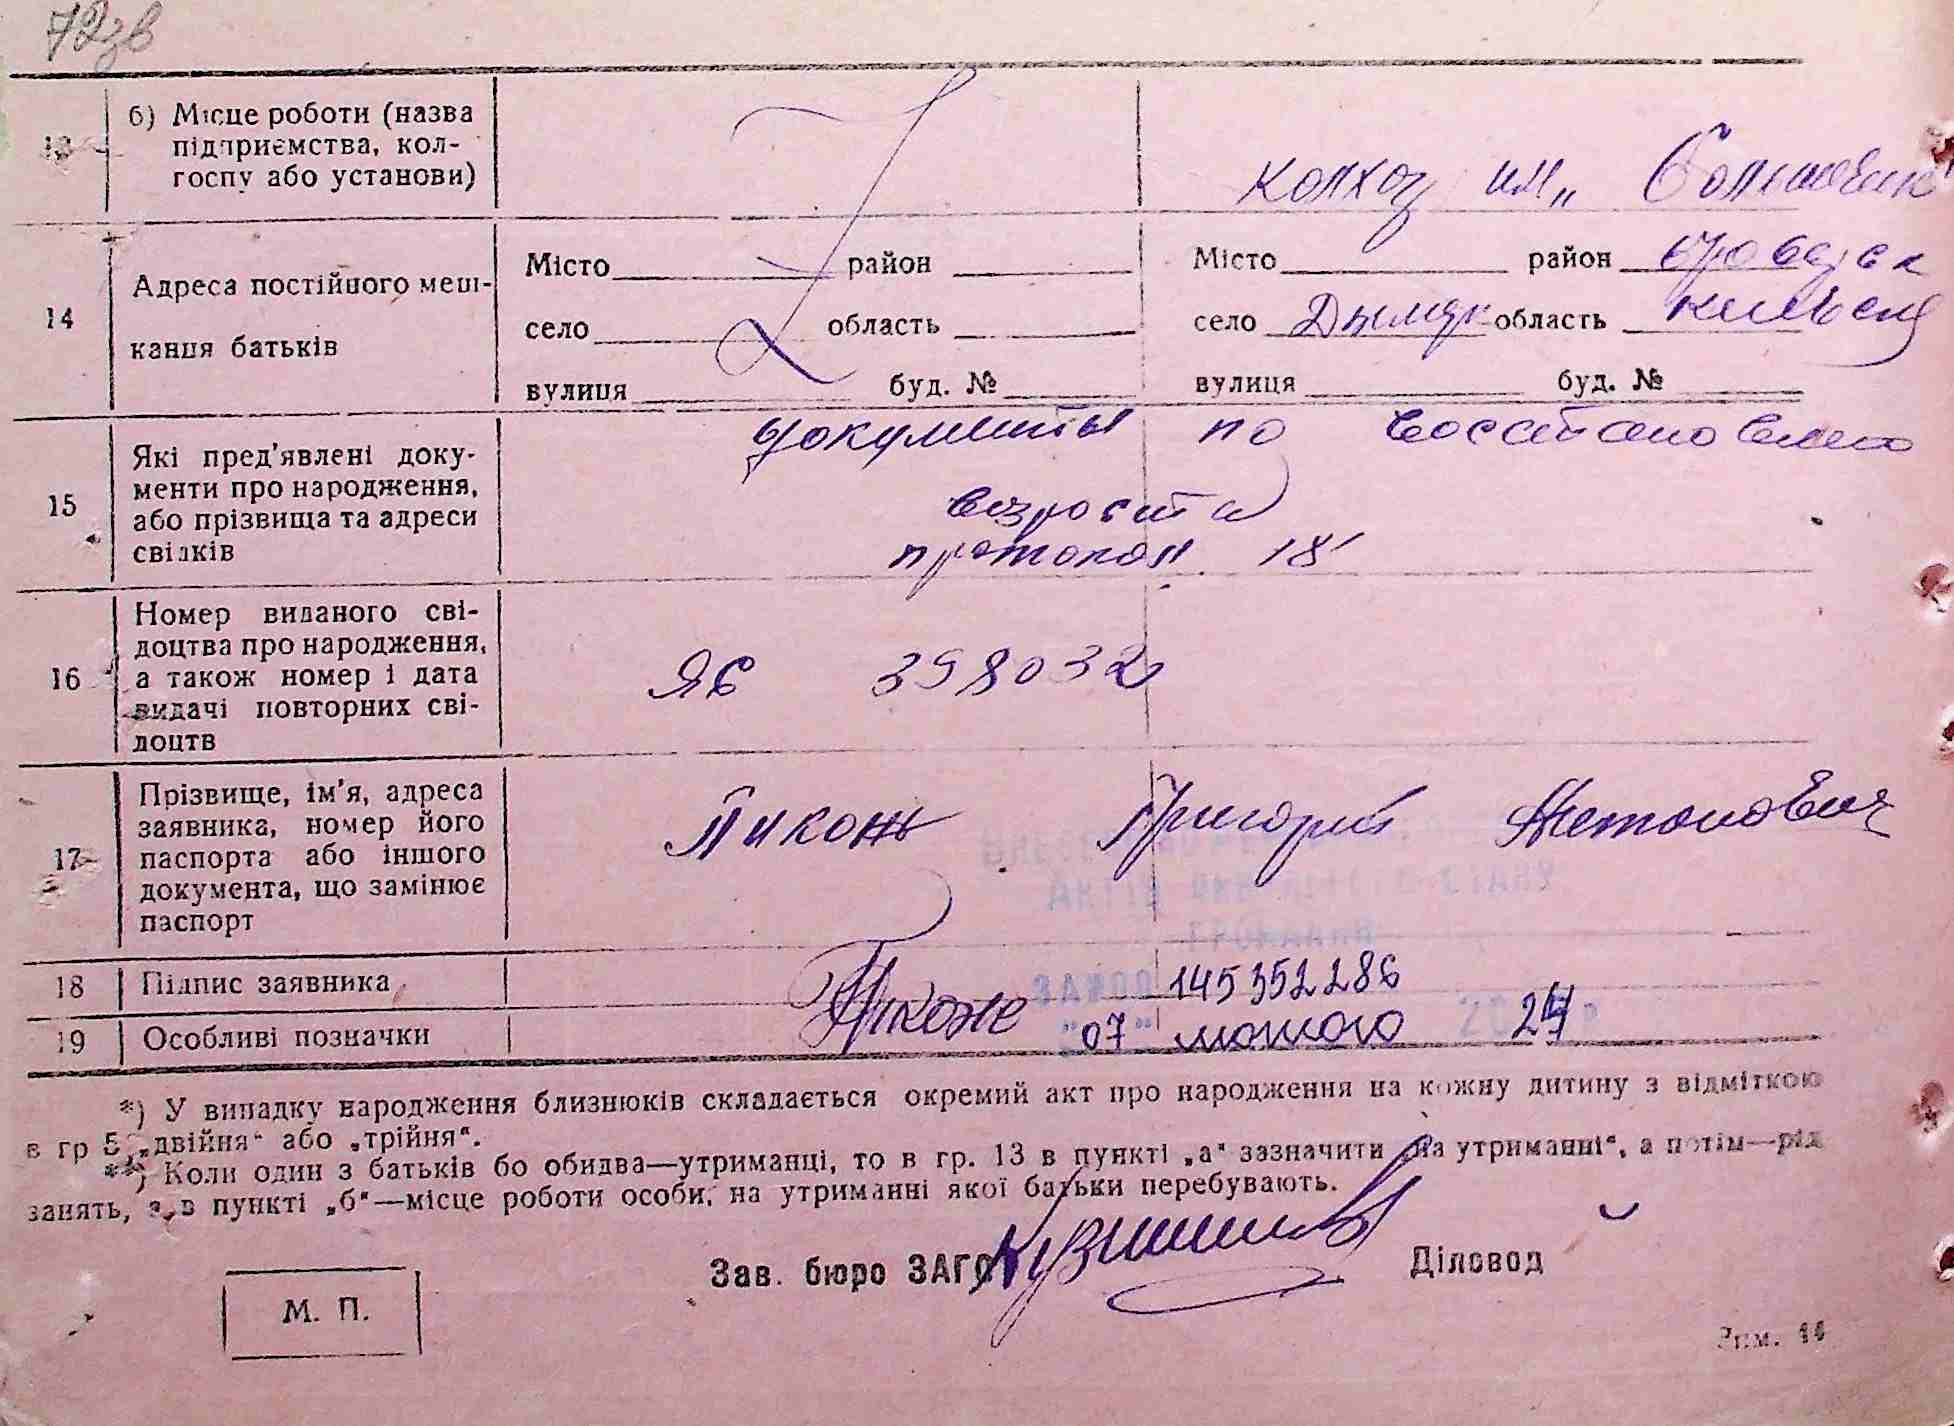 72зв
13 б) Місце роботи (назва підприємства, колгоспу або установи)
колхоз им „ Большевик
14 Адреса постійного мешкання батьків
Місто район Місто район
село область село область
вулиця буд. № вулиця буд. №
15 Які пред'явлені документи про народження, або прізвища та адреси свідків
документы по
возраста
протокол 18
16 Номер виданого свідоцтва про народження, а також номер і дата видачі повторних свідоцтв
ЯБ 398032
17 Прізвище, ім'я, адреса заявника, номер його паспорта або іншого документа, що замінює паспорт
Пиконь Григорий
АКТІВ ЦИВІЛЬНОГО СТАНУ
ГРОМАДЯН
18 Підпис заявника
145352286
19 Особливі позначки
"07" лютого 2024 р
*) У випадку народження близнюків складається окремий акт про народження на кожну дитину з відміткою
в гр 5 „двійня“ або „трійня“.
**) Коли один з батьків бо обидва—утриманці, то в гр. 13 в пункті „а“ зазначити на утриманні“, а потім—рід
занять, а в пункті „б“—місце роботи особи, на утриманні якої батьки перебувають.
Зав. бюро ЗАГС Діловод
М. П.
Зим. 14